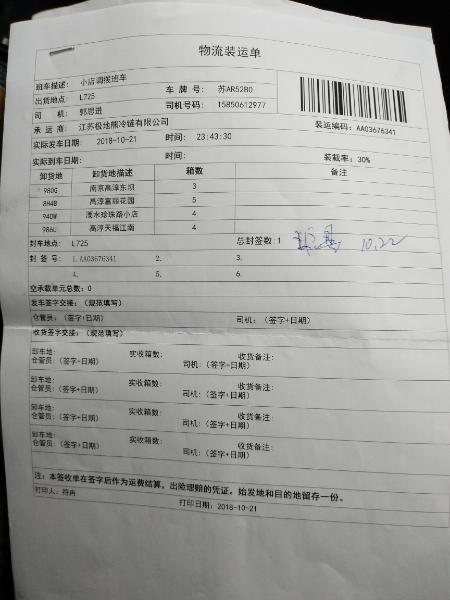 物流装运单
班车描述: 小店调拨班车
出货地点: L725 车牌号: 苏AR52B0
司机: 郭思进 司机号码: 15850612977
承运商: 江苏极地熊冷链有限公司 装运编码: AA03676341
实际发车日期: 2018-10-21 时间: 23:43:30
实际到车日期: 时间: 装载率: 30%
卸货地 卸货地描述 箱数 备注
980G 南京高淳东坝 3
8H4B 高淳富丽花园 5
940W 溧水珍珠路小店 4
986U 高淳天福江南 4
封车地点: L725 总封签数:1 10.22
封签号: 1.AA03676341 2. 3.
4. 5. 6.
空承载单元总数: 0
发车签字交接: (规范填写)
仓管员: (签字+日期) 司机: (签字+日期)
收货签字交接: (规范填写)
卸车地: 实收箱数: 收货备注:
仓管员: (签字+日期) 司机: (签字+日期)
卸车地: 实收箱数: 收货备注:
仓管员: (签字+日期) 司机: (签字+日期)
卸车地: 实收箱数: 收货备注:
仓管员: (签字+日期) 司机: (签字+日期)
卸车地: 实收箱数: 收货备注:
仓管员: (签字+日期) 司机: (签字+日期)
注: 本签收单在签字后作为运费结算, 出险理赔的凭证, 始发地和目的地留存一份。
打印人: 符冉 打印日期: 2018-10-21